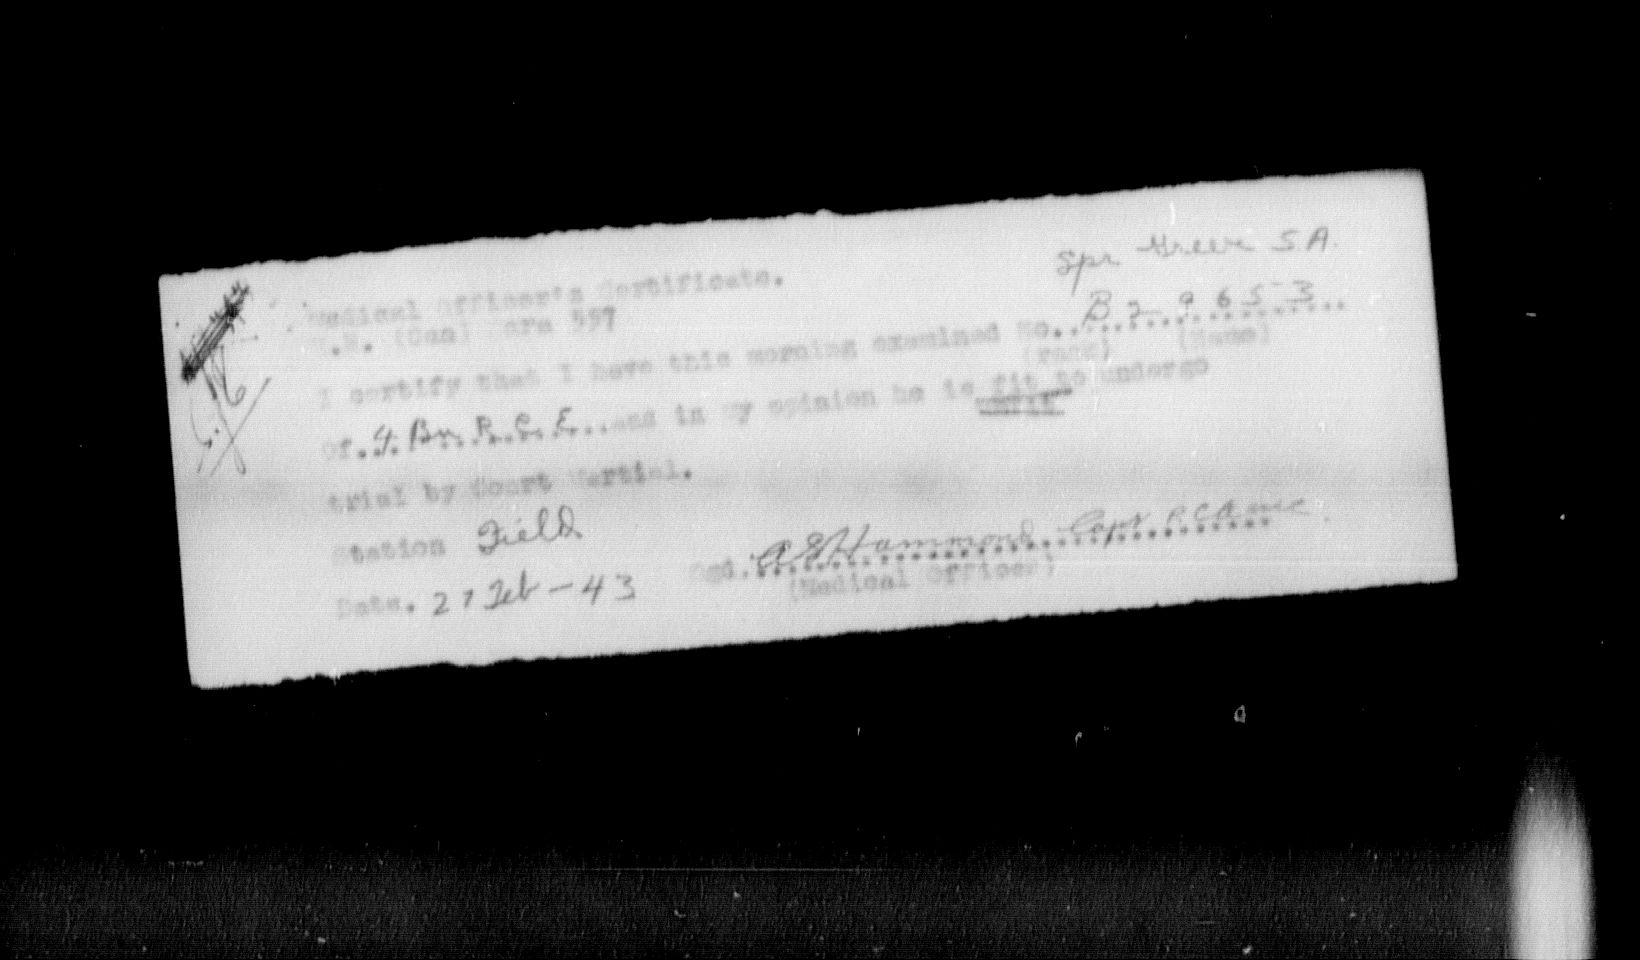 Spr Greer S A.
Medical Officer's Certificate.
(Can) Para 597
I certify that I have this morning examined No. B 29653
(rank) (Name)
Of. 4 Bn R.C.E. and in my opinion he is fit to undergo
unfit
trial by Court Martial.
Station Field
Sgd. A E Hammond Capt RCAMC
(Medical Officer)
Date. 27 Feb - 43